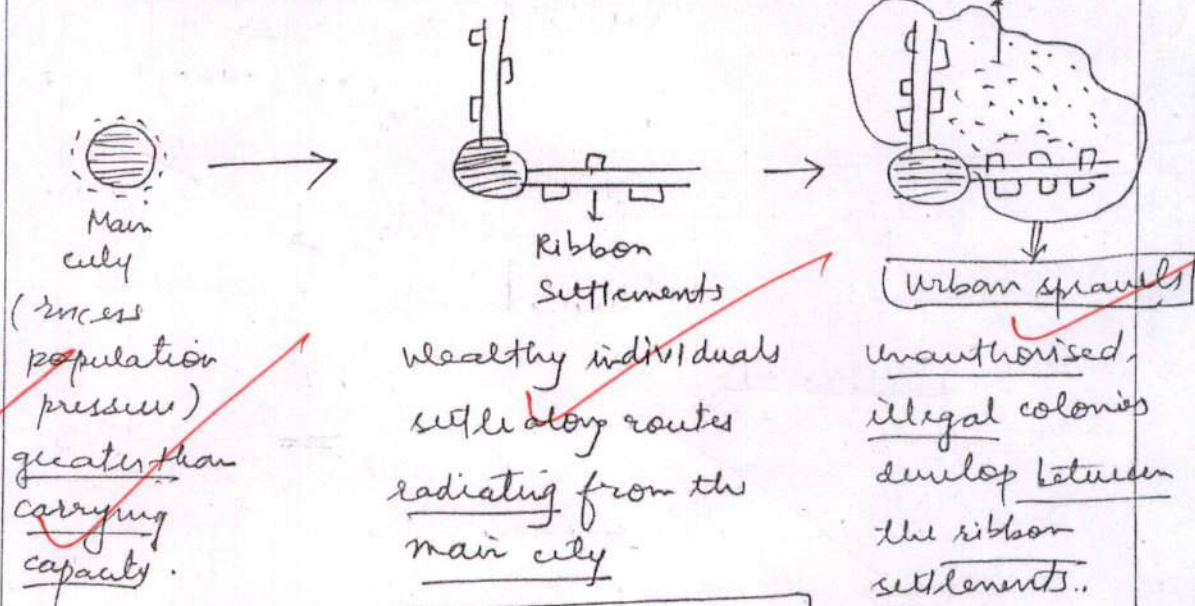 Main
city
(excess
population
pressure)
greater than
carrying
capacity.
Ribbon
Settlements
Wealthy individuals
settle along routes
radiating from the
main city
Urban sprawls
unauthorised,
illegal colonies
develop between
the ribbon
settlements..